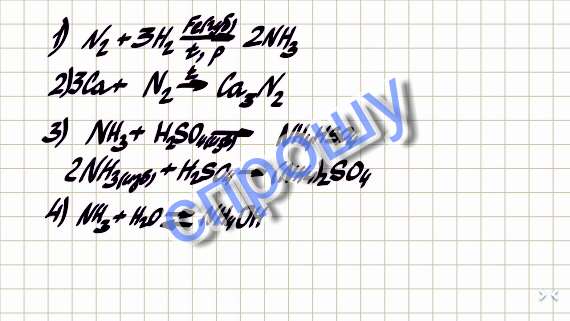 1) N₂ + 3H₂ Fe(губ) t, p 2NH₃
2) 3Ca + N₂ t→ Ca₃N₂
3) NH₃ + H₂SO₄(изб) →
2NH₃(изб) + H₂SO₄ → (NH₄)₂SO₄
4) NH₃ + H₂O ⇌ NH₄OH
спрошу